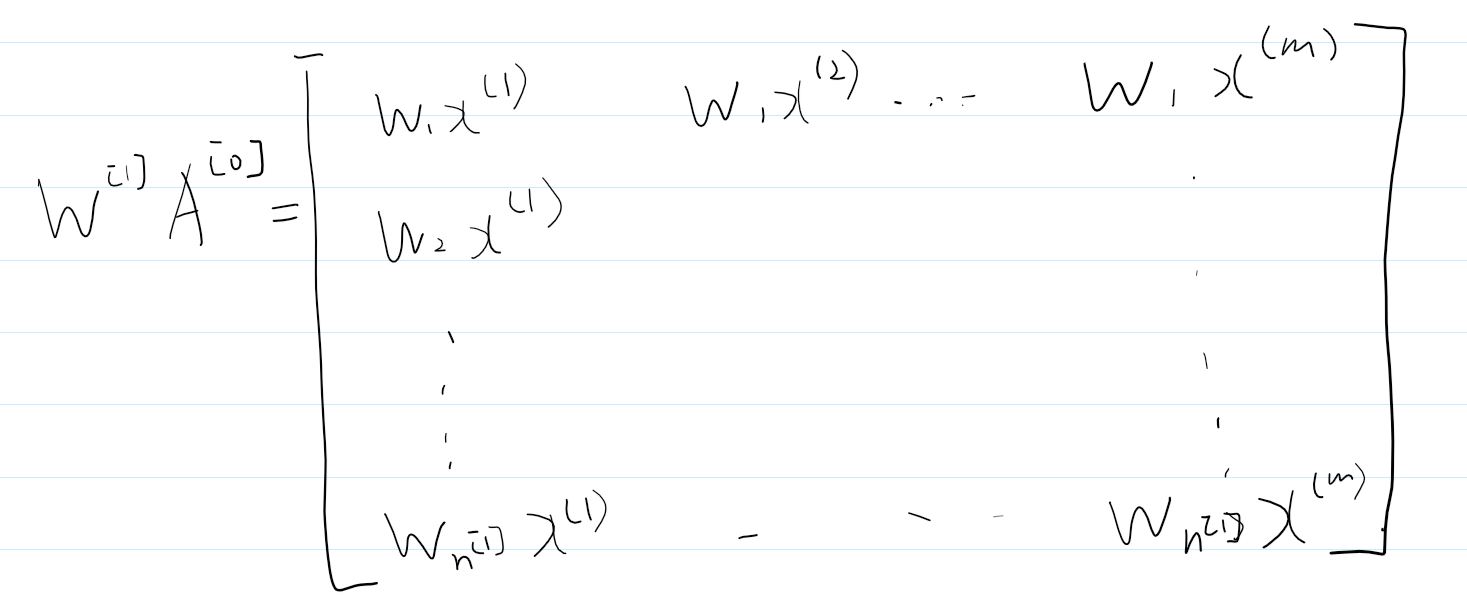 W^{[1]} A^{[0]} = [ W_1 x^{(1)} W_1 x^{(2)} ... W_1 x^{(m)}
W_2 x^{(1)}
W_{n^{[1]}} x^{(1)} ... W_{n^{[1]}} x^{(m)} ]